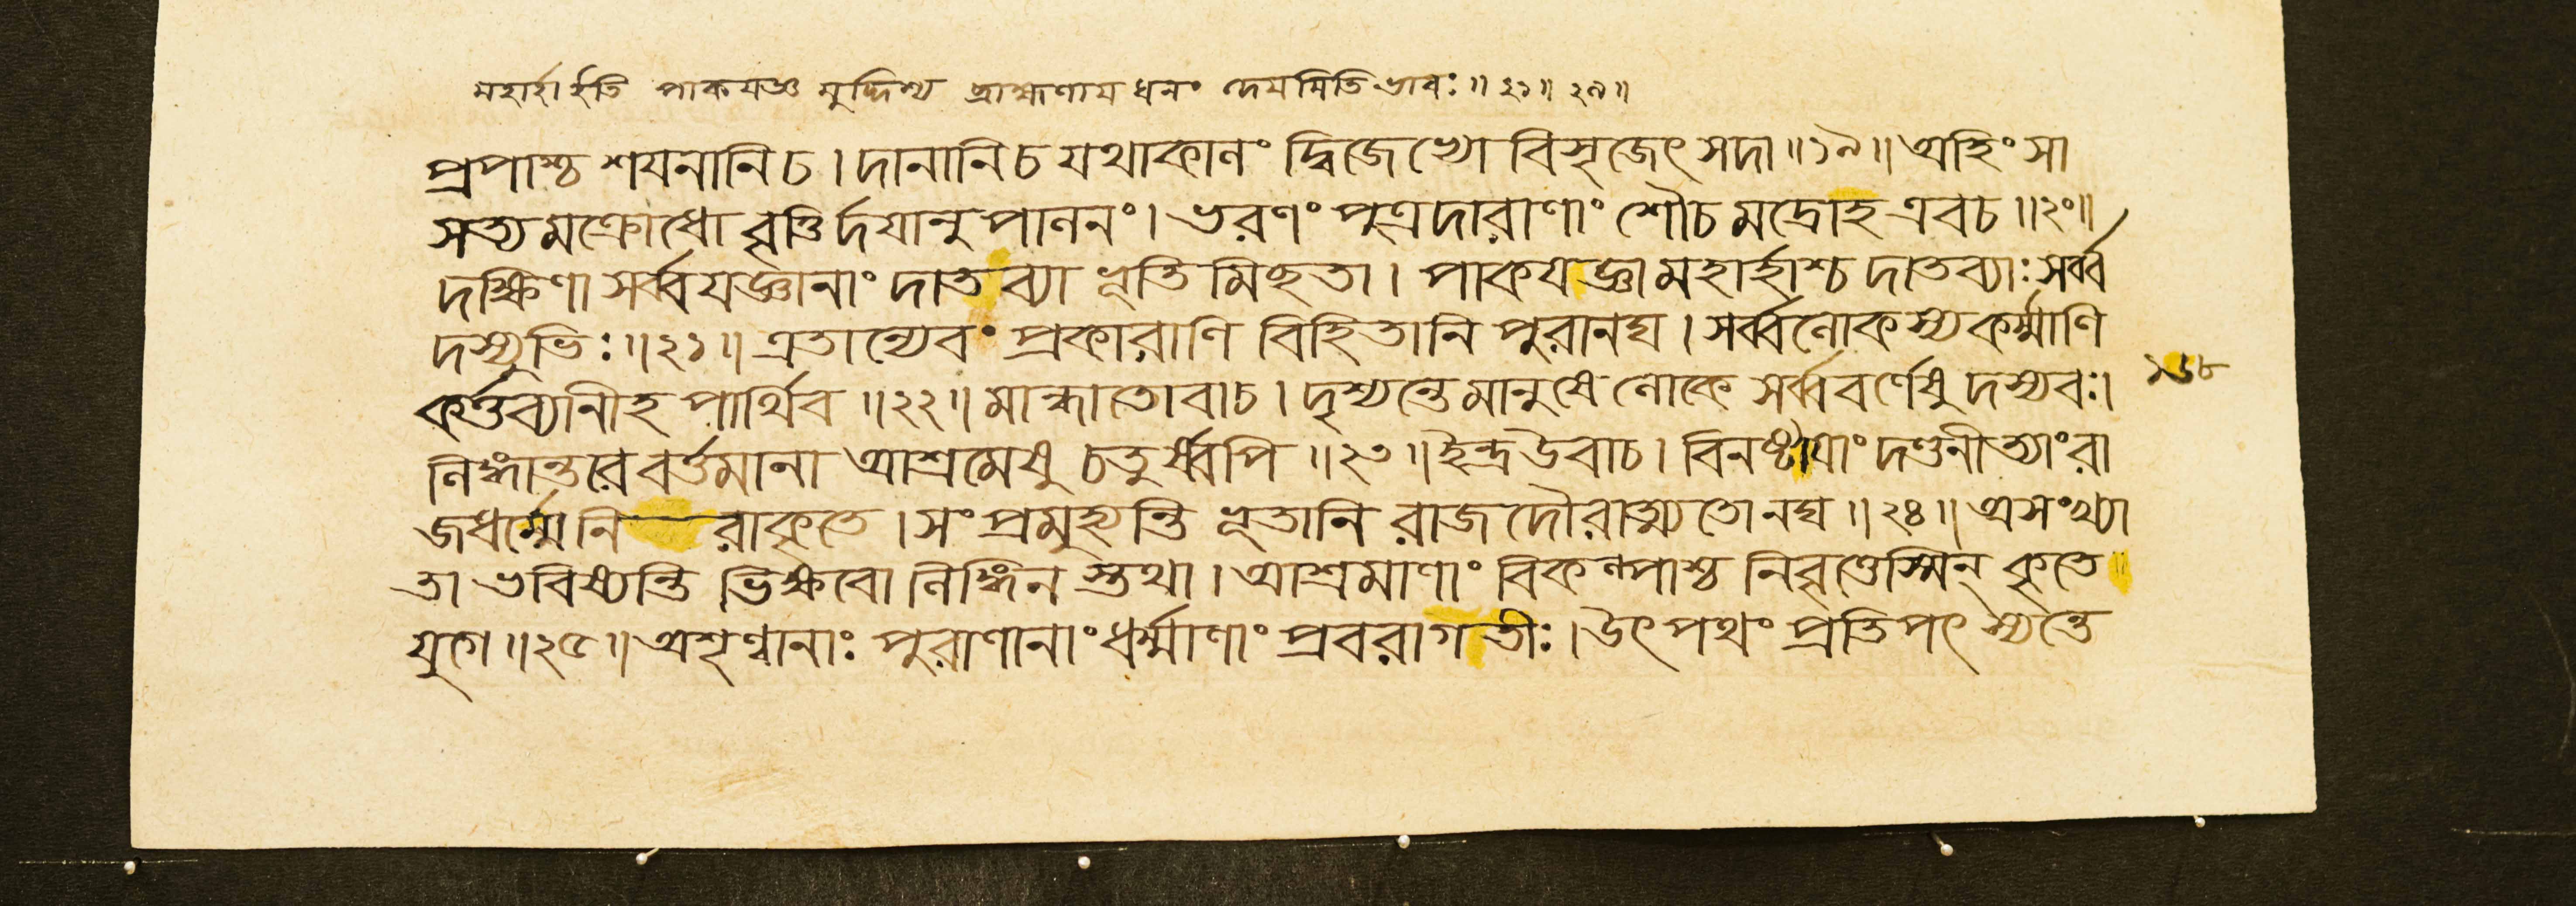 মহার্হা ইতি পাকযজ্ঞ মুদ্দিশ্য ব্রাহ্মণায ধনং দেযমিতি ভাবঃ ॥ ২১ ॥ ২৯ ॥
প্রপাশ্চ শযনানি চ । দানানি চ যথাকালং দ্বিজেভ্যো বিসৃজেৎ সদা ॥ ১৯ ॥ অহিংসা
সত্যমক্রোধো বৃত্তির্দযানুপালনং । ভরণং পুত্রদারাণাং শৌচমদ্রোহ এব চ ॥ ২০ ॥
দক্ষিণা সর্ব্বযজ্ঞানাং দাতব্যা ভূতিমিছতা । পাকযজ্ঞা মহার্হাশ্চ দাতব্যাঃ সর্ব্ব
দস্যুভিঃ ॥ ২১ ॥ এতান্যেবং প্রকারাণি বিহিতানি পুরানঘ । সর্ব্বলোকস্য কর্ম্মাণি
কর্ত্তব্যানীহ পার্থিব ॥ ২২ ॥ মান্ধাতোবাচ । দৃশ্যন্তে মানুষে লোকে সর্ব্ববর্ণেষু দস্যবঃ ।
লিঙ্গান্তরে বর্ত্তমানা আশ্রমেষু চতুর্ষ্বপি ॥ ২৩ ॥ ইন্দ্র উবাচ । বিনষ্টাযাং দণ্ডনীত্যাং রা
জধর্ম্মে নিরাকৃতে । সংপ্রমুহ্যন্তি ভূতানি রাজদৌরাত্ম্যতোনঘ ॥ ২৪ ॥ অসংখ্যা
তা ভবিষ্যন্তি ভিক্ষবো লিঙ্গিনস্তথা । আশ্রমাণাং বিকল্পাশ্চ নিবৃত্তেস্মিন্ কৃতে
যুগে ॥ ২৫ ॥ অশৃণ্বানাঃ পুরাণানাং ধর্ম্মাণাং প্রবরা গতীঃ । উৎপথং প্রতিপৎস্যন্তে